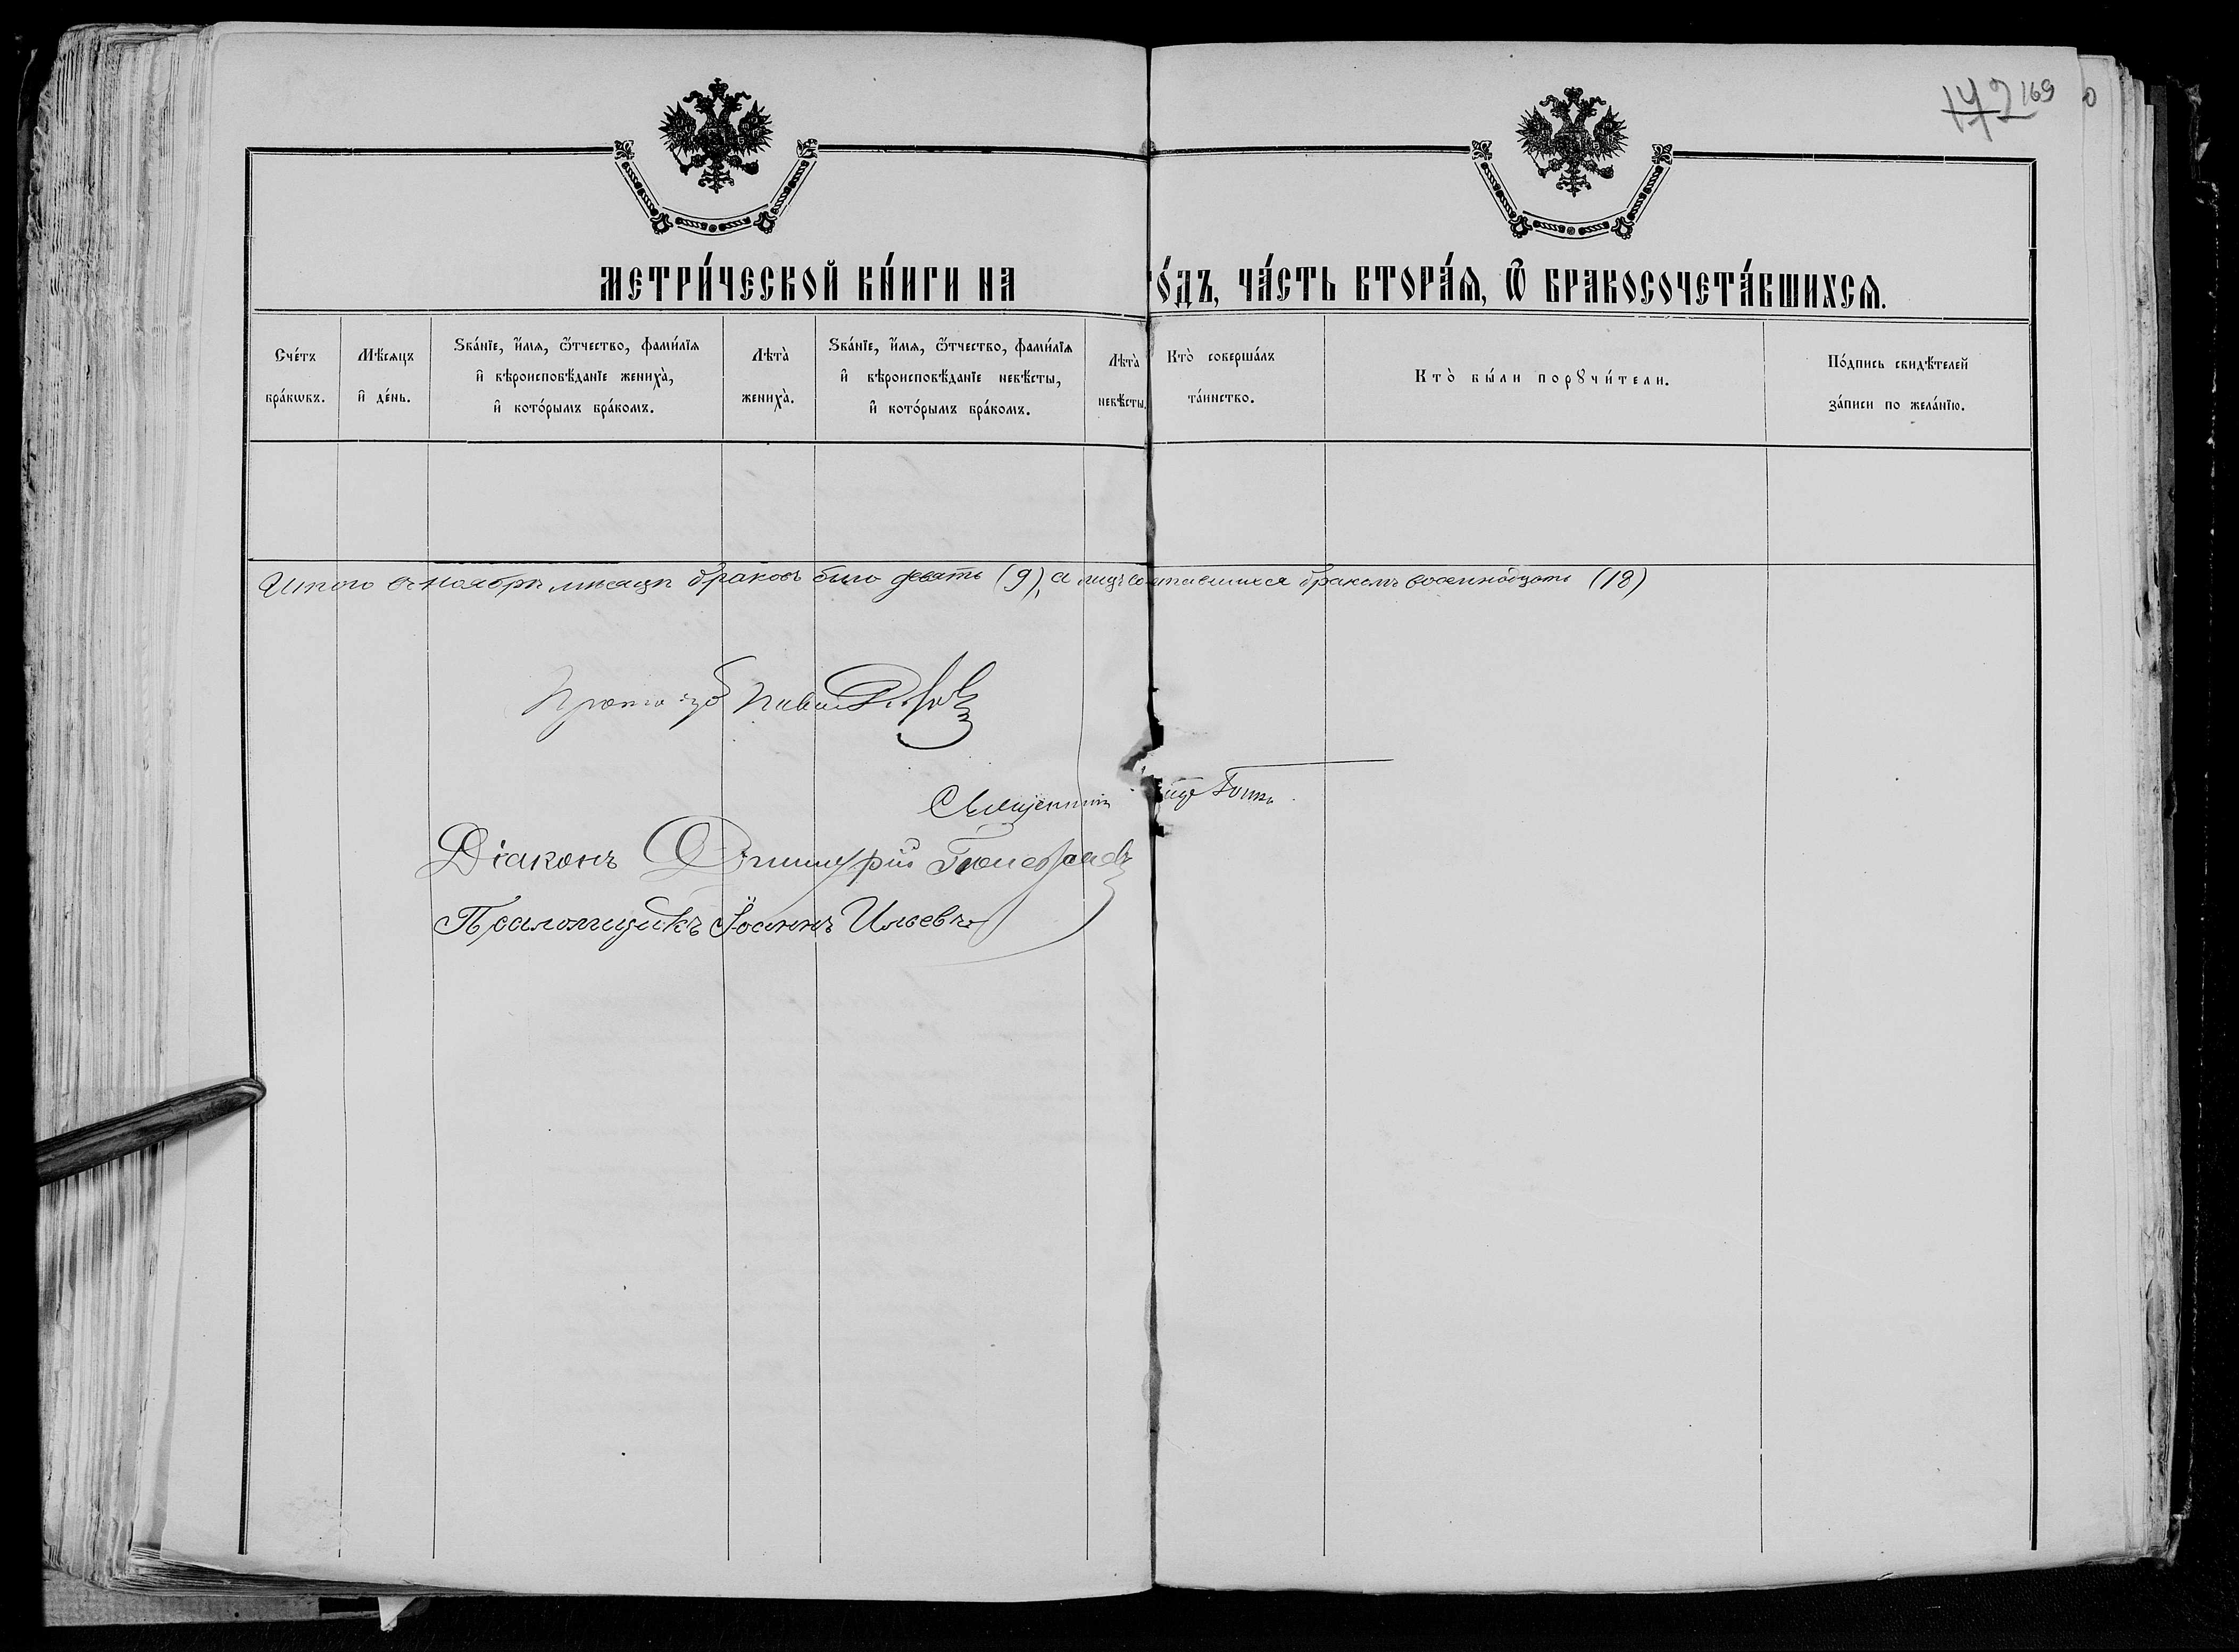 172 169
МЕТРИ́ЧЕСКОЙ КНИ́ГИ НА ГО́ДЪ, ЧА́СТЬ ВТОРА́Ѧ, Ѽ БРАКОСОЧЕТА́ВШИХСѦ.
Сче́тъ бра́кѡвъ.
Мѣ́сѧцъ и҆ де́нь.
Ѕва́нїе, и҆́мѧ, ѻ҆́тчество, фами́лїѧ
и҆ вѣроисповѣ́данїе жениха̀,
и҆ кото́рымъ бра́комъ.
Лѣта̀ жениха̀.
Ѕва́нїе, и҆́мѧ, ѻ҆́тчество, фами́лїѧ
и҆ вѣроисповѣ́данїе невѣ́сты,
и҆ кото́рымъ бра́комъ.
Лѣта̀ невѣ́сты.
Кто̀ соверша́лъ та́инство.
Кто̀ бы́ли порꙋчи́тели.
По́дпись свидѣ́телей
за́писи по жела́нїю.
Итого въ ноябрѣ мѣсяцѣ браковъ было девять (9), а лицъ сочетавшихся бракомъ восемнадцать (18)
Павелъ
Священникъ
Діаконъ Димитрій
Псаломщикъ Іоаннъ Ильевъ